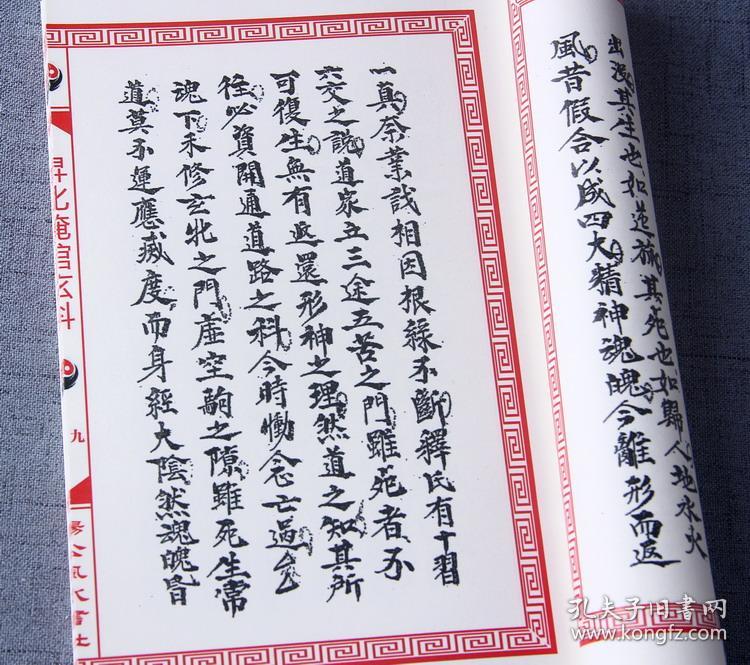 出沒其生也如逆旅其死也如歸人地水火
風昔假合以成四大精神魂魄今離形而返
一真奈業識相因根緣不斷釋氏有十習
六交之說道家立三途五苦之門雖死者不
可復生無有返還形神之理然道之知其所
往必資開通道路之科今時慟念亡過
魂下未修玄牝之門虛空駒之隙雖死生常
道莫不運應滅度而身經太陰然魂魄昏
昇化掩棺玄科
九
楊公風水書社
孔夫子旧书网
www.kongfz.com